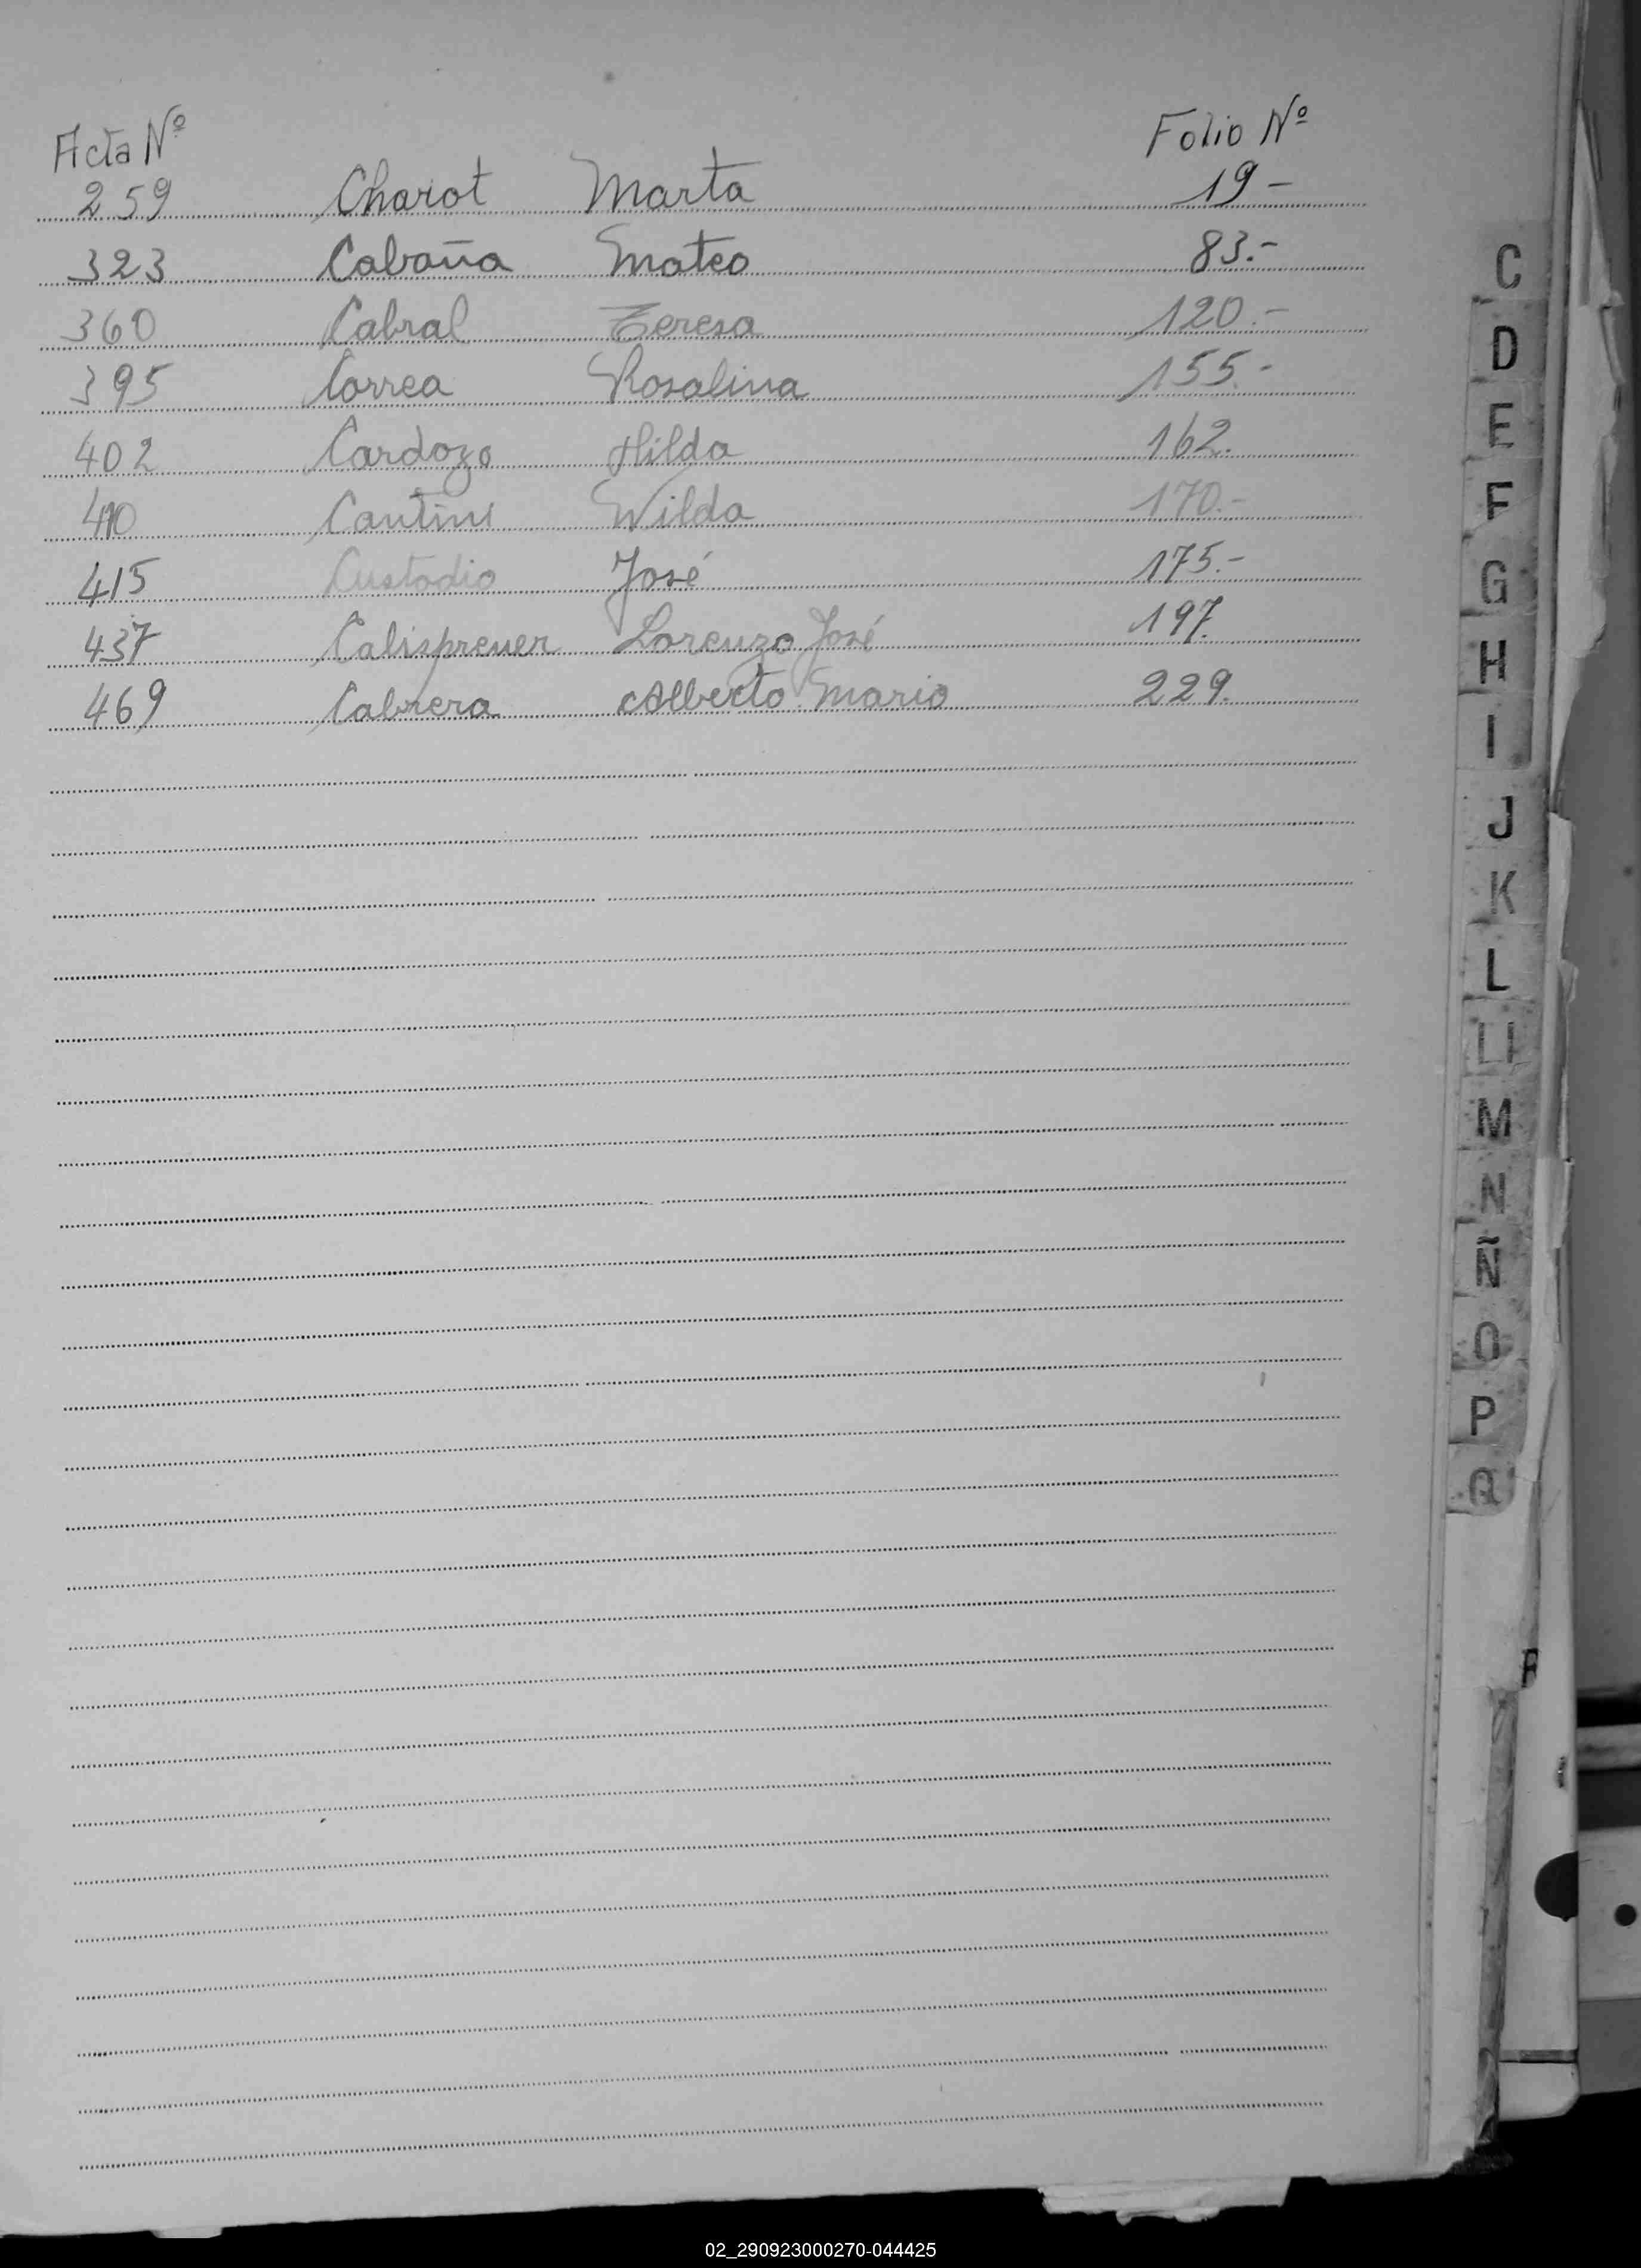 Acta Nº Folio Nº
259 Charot Marta 19-
323 Cabaña Mateo 83.-
360 Cabral Teresa 120.-
395 Correa Rosalina 155.-
402 Cardozo Hilda 162.
410 Cantini Wilda 170.-
415 Custodio José 175.-
437 Calisprener Lorenzo José 197.
469 Cabrera Alberto Mario 229.
C
D
E
F
G
H
I
J
K
L
M
N
Ñ
O
P
Q
R
02_290923000270-044425